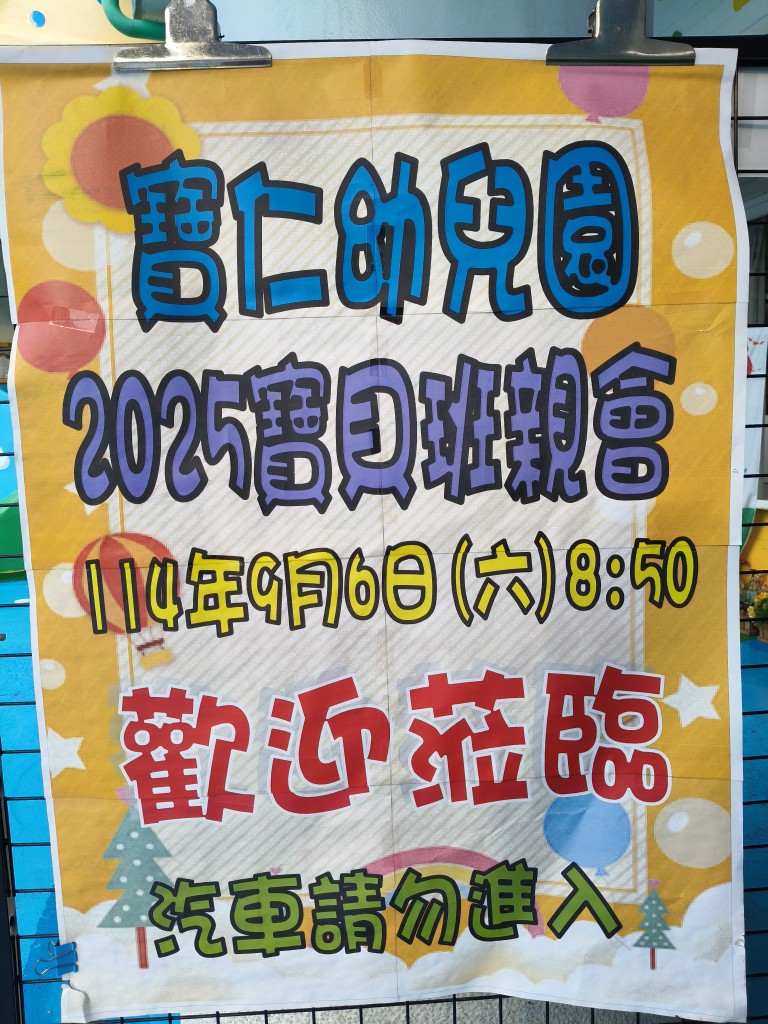 寶仁幼兒園
2025寶貝班親會
114年9月6日(六)8:50
歡迎蒞臨
汽車請勿進入